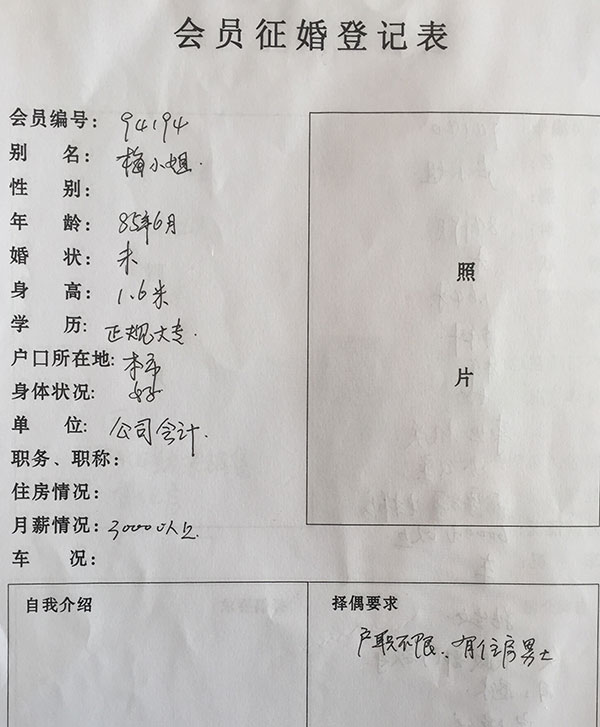 会员征婚登记表
会员编号: 94194
别 名: 梅小姐.
性 别:
年 龄: 85年6月
婚 状: 未
身 高: 1.6米
学 历: 正规大专.
户口所在地: 本市
身体状况: 好
单 位: 公司会计.
职务、职称:
住房情况:
月薪情况: 3000以上.
车 况:
照
片
自我介绍
择偶要求
户职不限、有住房男士